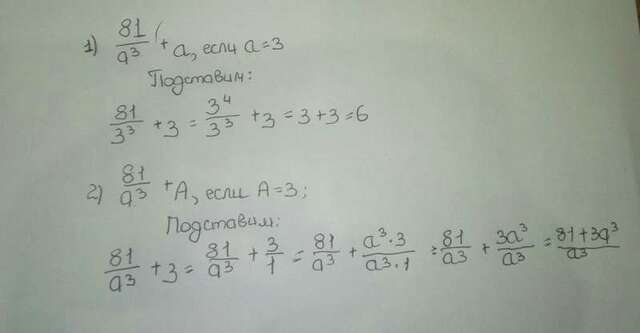 1) 81/a³ + a, если a=3
Подставим:
81/3³ + 3 = 3⁴/3³ + 3 = 3+3=6
2) 81/a³ + A, если A=3;
Подставим:
81/a³ + 3 = 81/a³ + 3/1 = 81/a³ + a³·3/a³·1 = 81/a³ + 3a³/a³ = 81+3a³/a³